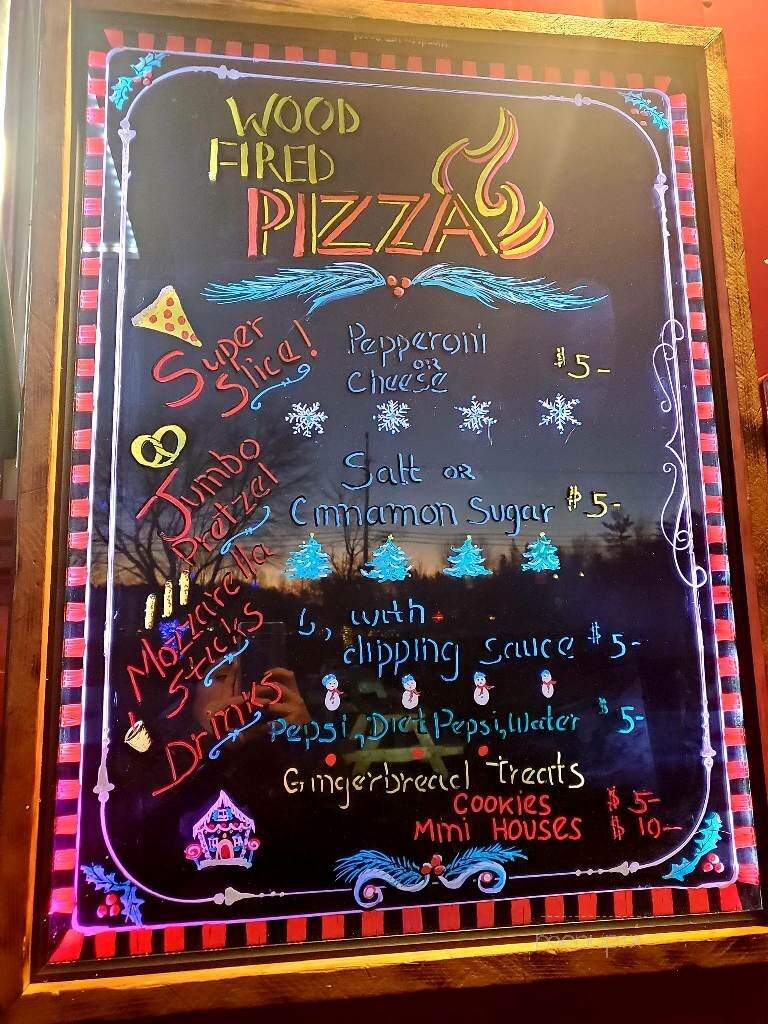 WOOD
FIRED
PIZZA
Super
Slice!
Pepperoni
OR
Cheese
$5-
Jumbo
Pretzel
Salt OR
Cinnamon Sugar $5-
Mozzarella
Sticks
with
dipping sauce $5-
Drinks
Pepsi, Diet Pepsi, Water $5-
Gingerbread Treats
COOKIES $5-
Mini HOUSES $10-